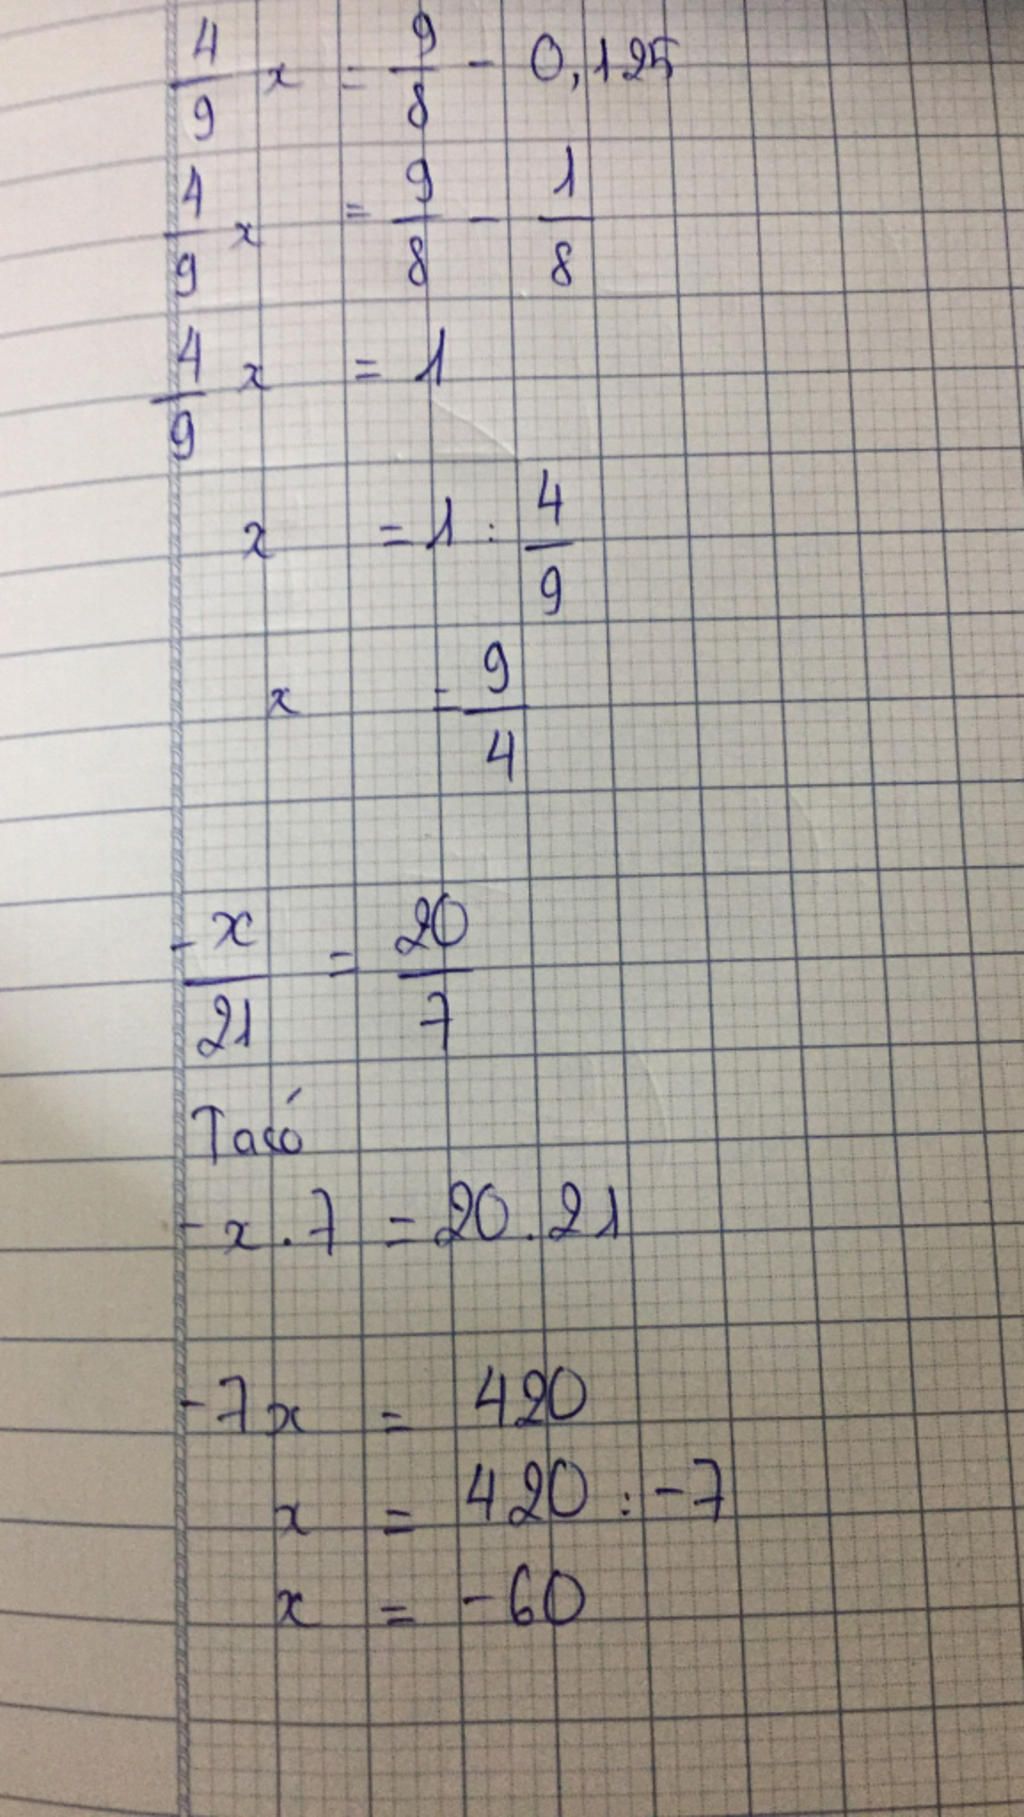 4/9 x = 9/8 - 0,125
4/9 x = 9/8 - 1/8
4/9 x = 1
x = 1 : 4/9
x = 9/4
-x/21 = 20/7
Ta có
-x . 7 = 20 . 21
-7x = 420
x = 420 : -7
x = -60